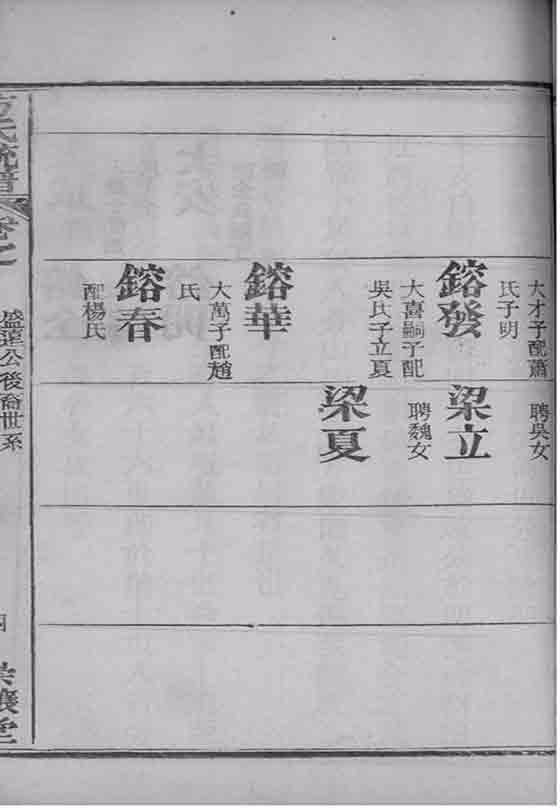 大才子配蕭
氏子明
鎔發
大喜嗣子配
吳氏子立夏
鎔華
大萬子配趙
氏
鎔春
配楊氏
聘吳女
梁立
聘魏女
梁夏
氏統譜
盛蓮公後裔世系